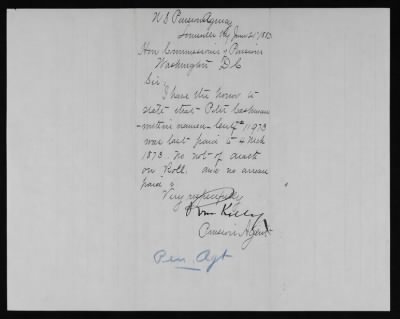 U S Pension Agency
Louisville Ky June 21" 1883
Hon Commissioner of Pensions
Washington D.C
Sir,
I have the honor to
state that Peter Cashman
Certf 11973
was last paid to 4 Mch
1873. No not of death
on Roll. and no arrears
paid
Very respectfully
Kelly
Pension Agent
Pen. Agt